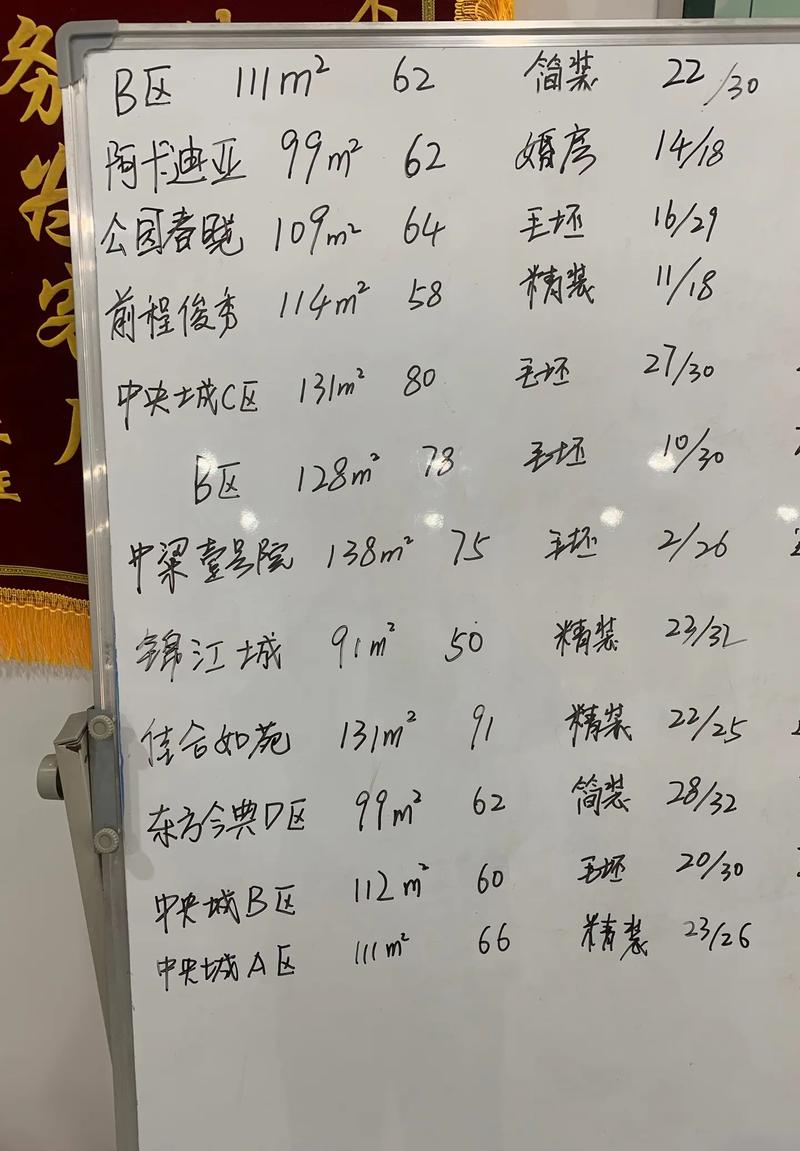 B区 111m² 62 简装 22/30
阿卡迪亚 99m² 62 婚房 14/18
公园春晓 109m² 64 毛坯 16/29
前程俊秀 114m² 58 精装 11/18
中央城C区 131m² 80 毛坯 27/30
B区 128m² 78 毛坯 10/30
中梁壹号院 138m² 75 毛坯 2/26
锦江城 91m² 50 精装 23/32
佳合如苑 131m² 91 精装 22/25
东方今典D区 99m² 62 简装 28/32
中央城B区 112m² 60 毛坯 20/30
中央城A区 111m² 66 精装 23/26
务